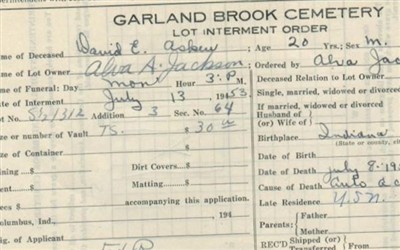 GARLAND BROOK CEMETERY
LOT INTERMENT ORDER
me of Deceased David E. Askew ; Age 20 Yrs.; Sex M.
me of Lot Owner Alva A. Jackson ; Ordered by Alva Jac
me of Funeral: Day Mon Hour 3: P.M. Deceased Relation to Lot Owner
te of Interment July 13 1953. Single, married, widowed or divorced
t No. S½1312 Addition 3 Sec. No. 64 If married, widowed or divorced
Husband of
(or) Wife of
ze or number of Vault TS. $ 30 Birthplace Indiana
(State or county, if
ze of Container Date of Birth
ning Dirt Covers Date of Death July 8-19
ent Matting Cause of Death Auto ac
es accompanying this application. Late Residence U.S.N.
olumbus, Ind., , 194 Parents: Father
Mother
ig. of Applicant REC'D Shipped (or)
Transfer